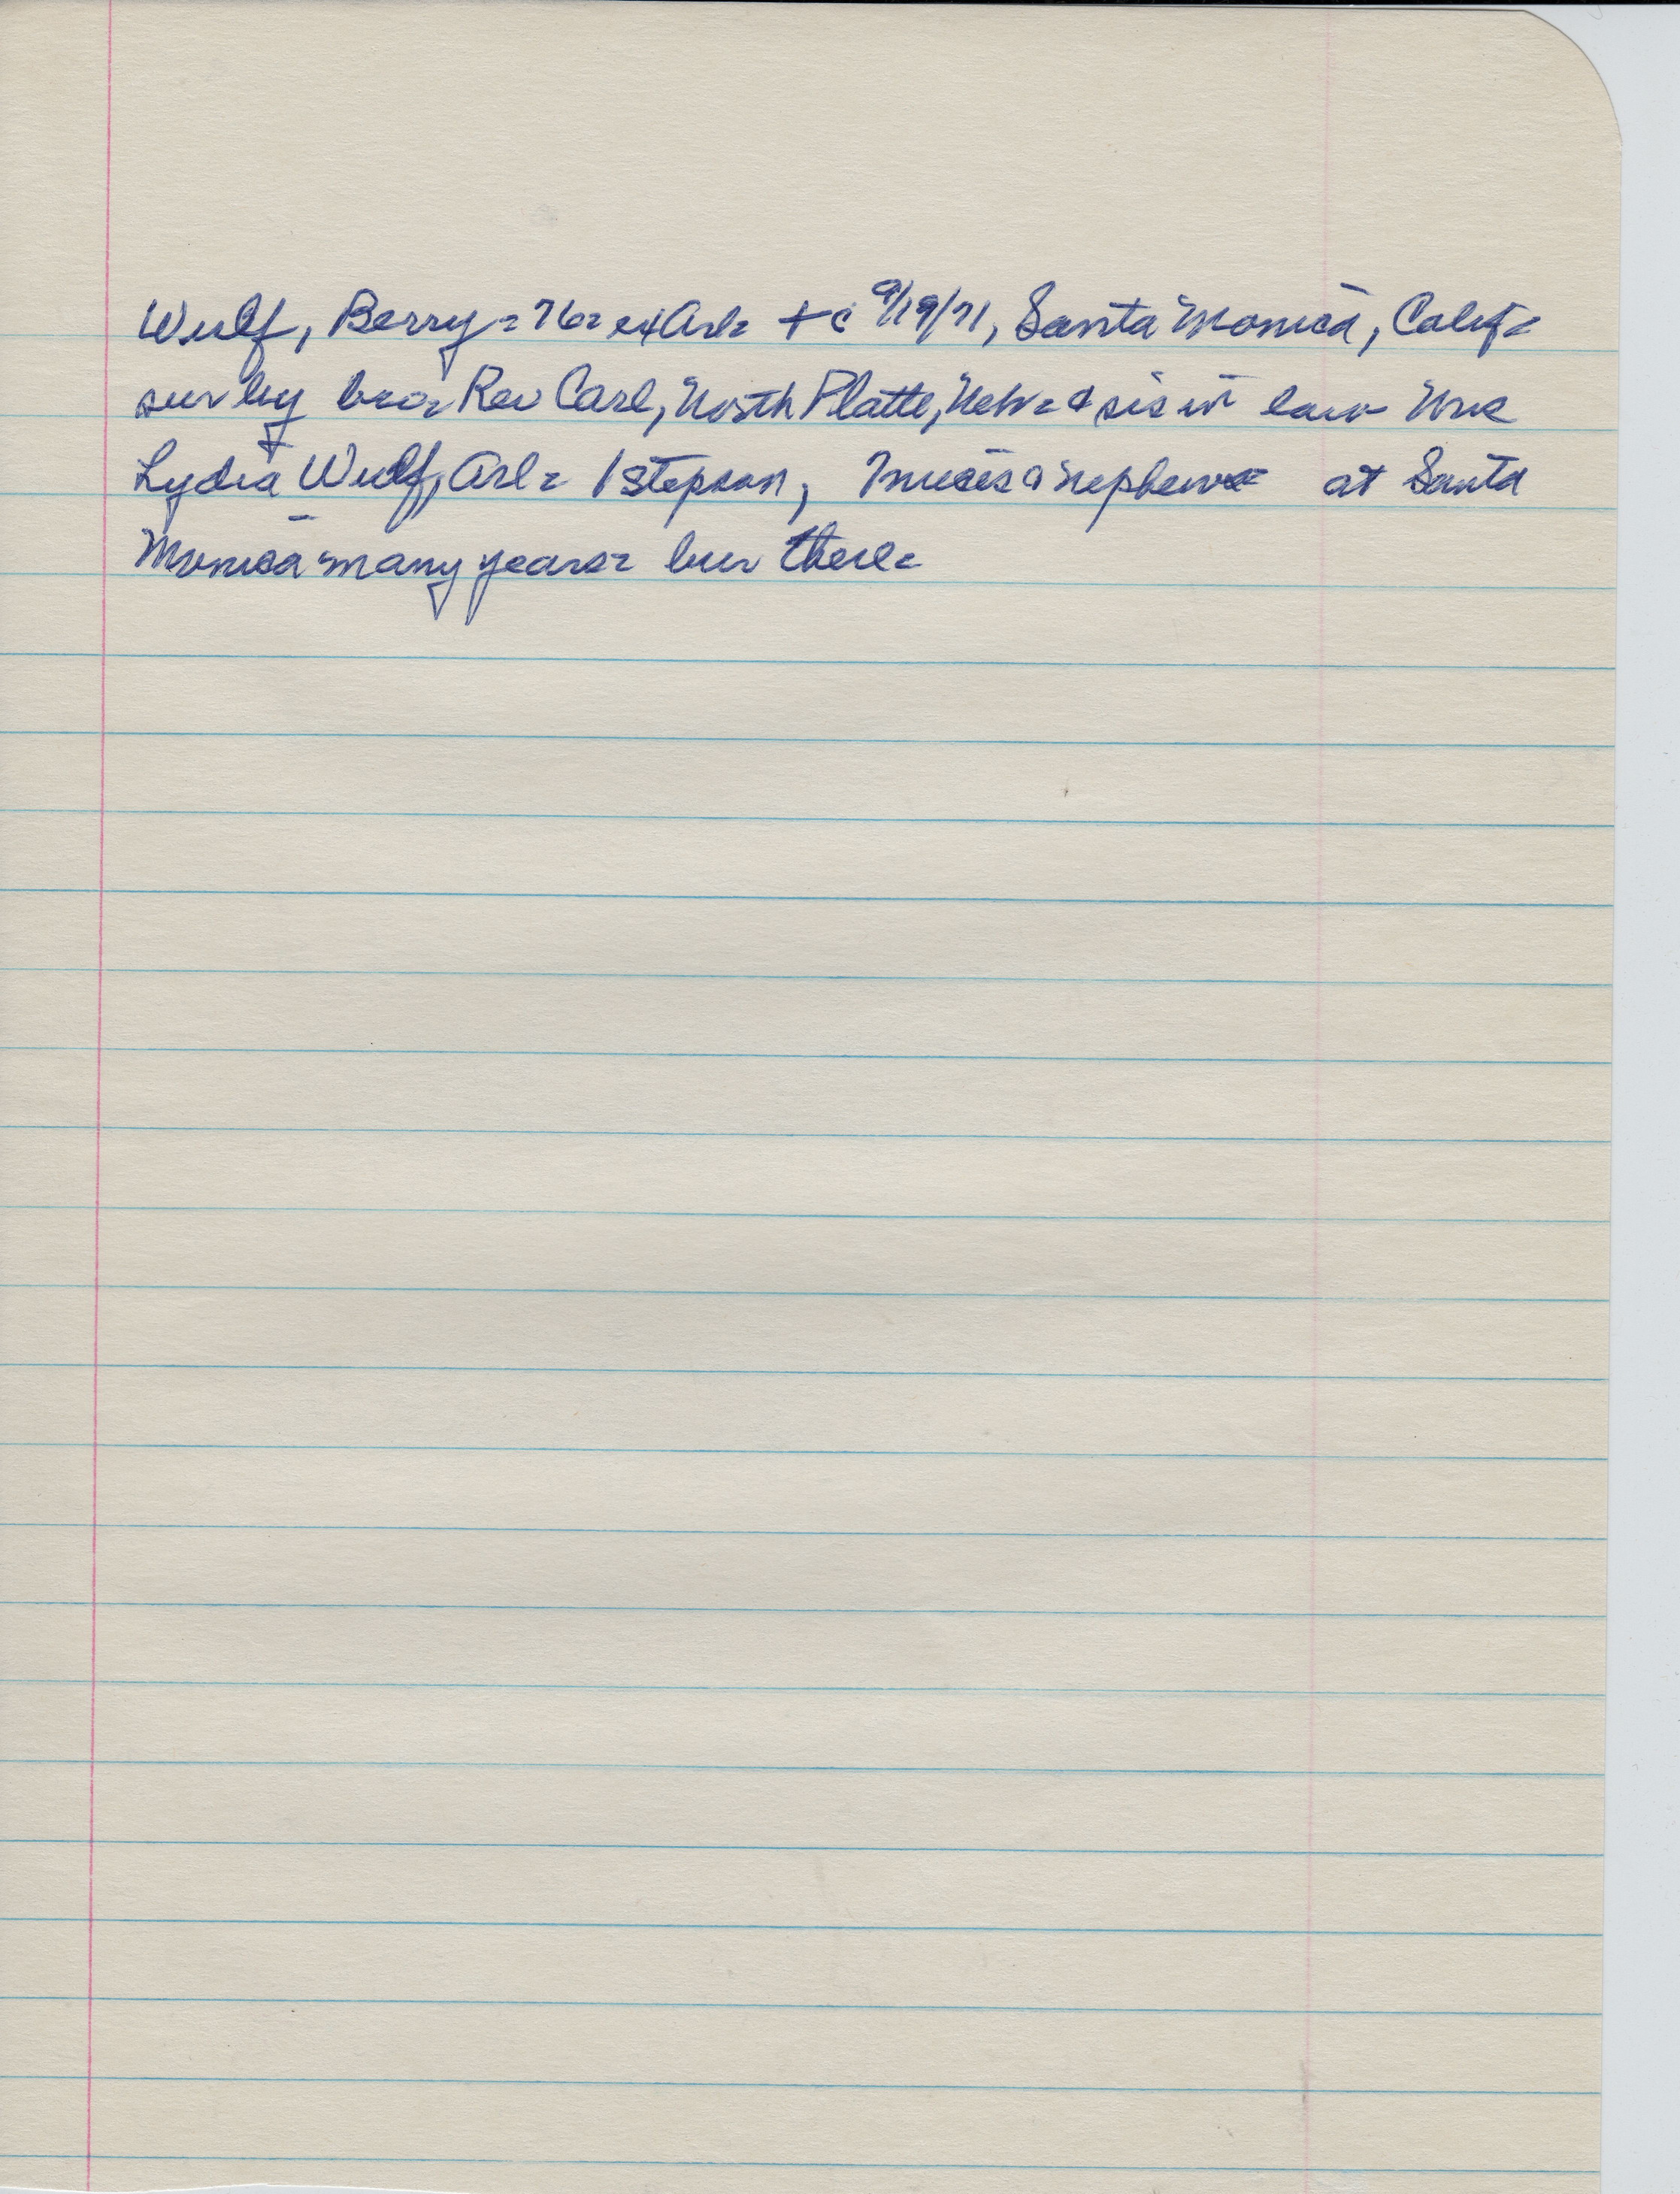 Wulf, Berry = 76 = ex Arl = + c 9/19/71, Santa Monica, Calif =
sur by bro = Rev Carl, North Platte, Nebr = & sis in law Mrs
Lydia Wulf, Arl = 1 stepson, nieces & nephews = at Santa
Monica many years = bur there =